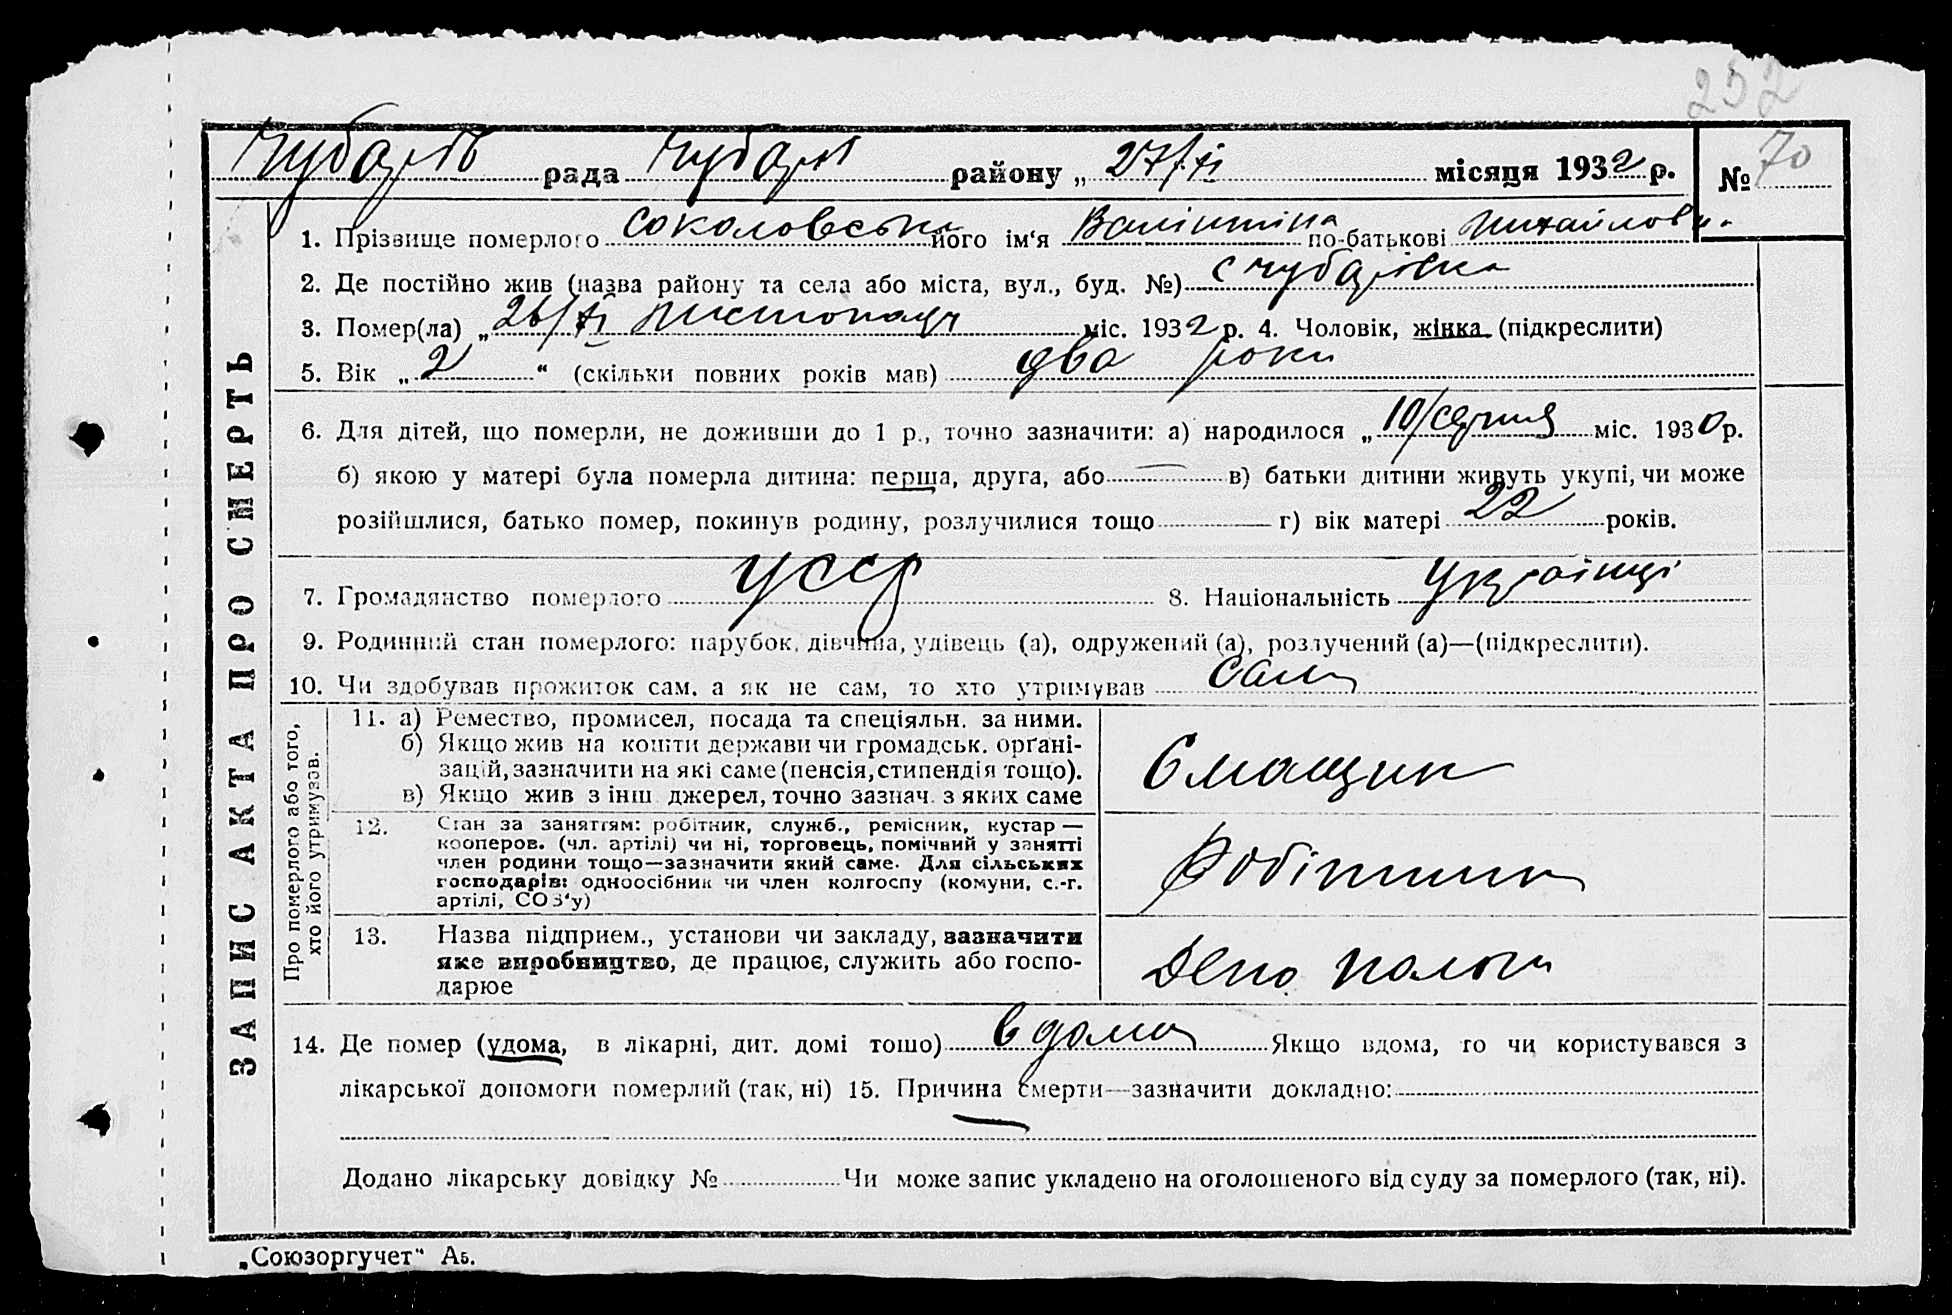 252
Чубарів рада Чубарі району „ 27/XI місяця 1932 р. № 70
ЗАПИС АКТА ПРО СМЕРТЬ
1. Прізвище померлого Соколовська його ім‘я Валінтіна по-батькові Михайлов
2. Де постійно жив (назва району та села або міста, вул., буд. №) с Чубарівка
3. Помер(ла) „ 26/XI листопаду міс. 1932 р. 4. Чоловік, жінка (підкреслити)
5. Вік „ 2 “ (скільки повних років мав) два роки
6. Для дітей, що померли, не доживши до 1 р., точно зазначити: а) народилося „ 10/серпня міс. 1930 р.
б) якою у матері була померла дитина: перша, друга, або — в) батьки дитини живуть укупі, чи може
розійшлися, батько помер, покинув родину, розлучилися тощо г) вік матері 22 років.
7. Громадянство померлого УССР 8. Національність Українці
9. Родинний стан померлого: парубок, дівчина, удівець (а), одружений (а), розлучений (а)—(підкреслити).
10. Чи здобував прожиток сам, а як не сам, то хто утримував Сам
Про померлого або того, хто його утримував.
11. а) Ремество, промисел, посада та спеціяльн. за ними.
б) Якщо жив на кошти держави чи громадськ. орґані-
зацій, зазначити на які саме (пенсія, стипендія тощо).
в) Якщо жив з інш. джерел, точно зазнач. з яких саме
Смащик
12. Стан за заняттям: робітник, служб., ремісник, кустар —
кооперов. (чл. артілі) чи ні, торговець, помічний у занятті
член родини тощо—зазначити який саме. Для сільських
господарів: одноосібник чи член колгоспу (комуни, с.-г.
артілі, СОЗ‘у)
Робітник
13. Назва підприєм., установи чи закладу, зазначити
яке виробництво, де працює, служить або госпо-
дарює
Депо Пологи
14. Де помер (удома, в лікарні, дит. домі тощо) вдома Якщо вдома, то чи користувався з
лікарської допомоги померлий (так, ні) 15. Причина смерти—зазначити докладно:
—
Додано лікарську довідку № Чи може запис укладено на оголошеного від суду за померлого (так, ні).
„Союзоргучет“ Аб.